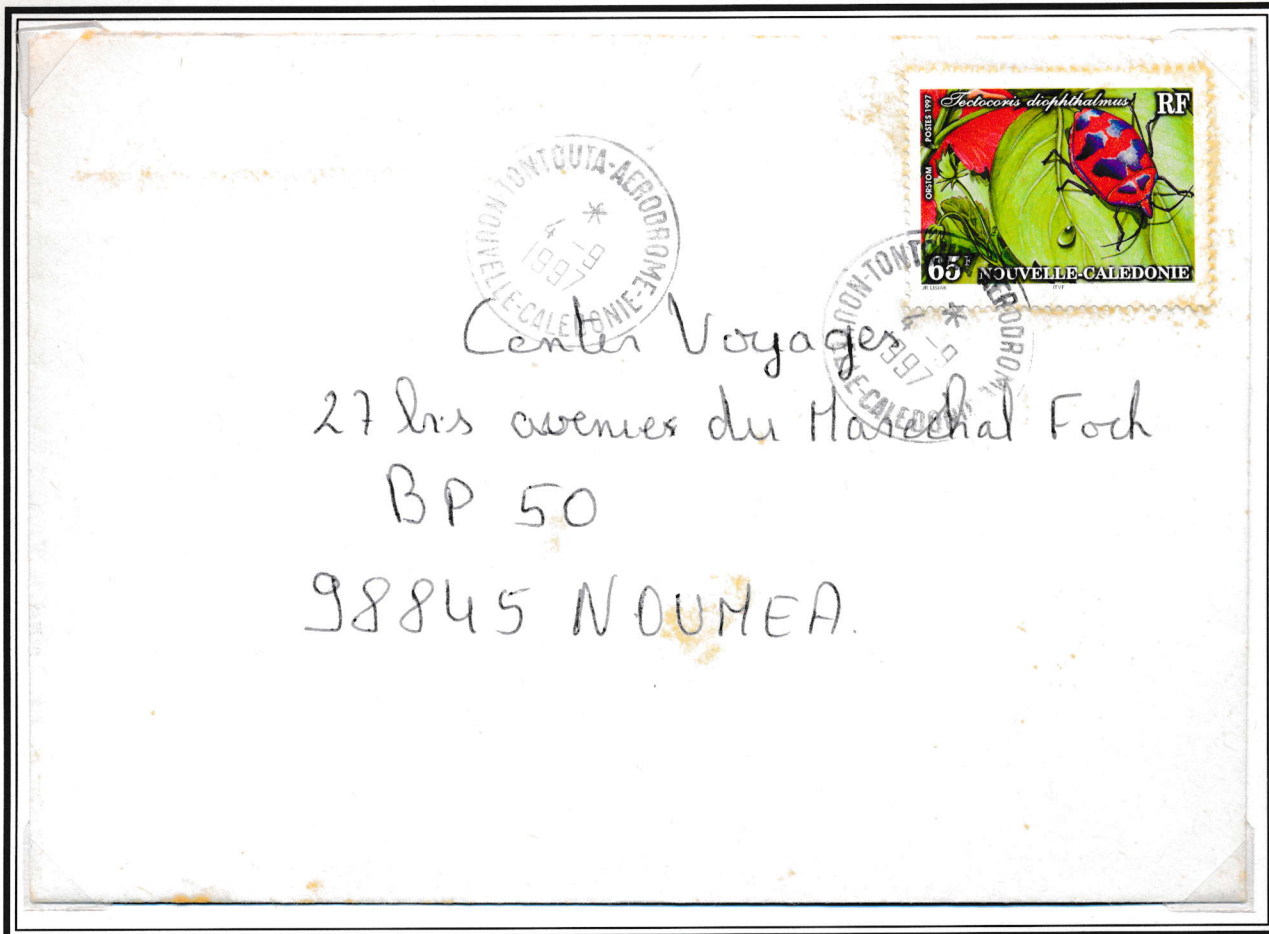 Tectocoris diophthalmus RF
ORSTOM POSTES 1997
65F NOUVELLE-CALEDONIE
JR LISIAK ITVF
TONTOUTA-AERODROME
4 -9
1997
NOUVELLE-CALEDONIE
TONTOUTA AERODROM
4 -9
1997
Center Voyages
27 bis avenues du Marechal Foch
BP 50
98845 NOUMEA.